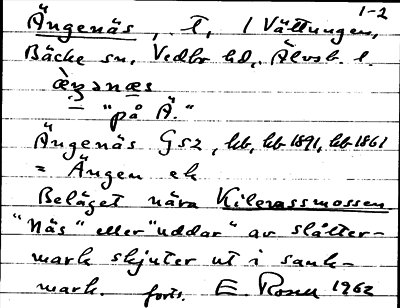 1-2
Ängenäs, T, i Vättungen,
Bäcke sn, Vedbo hd, Älvsb. l.
æŋənæs
- "på Ä."
Ängenäs Gs2, hk, kk 1891, hk 1861
= Ängen ek
Beläget nära Kilerassmossen.
"Näs" eller "uddar" av slåtter-
mark skjuter ut i sank-
mark. forts. E. Rosell 1962